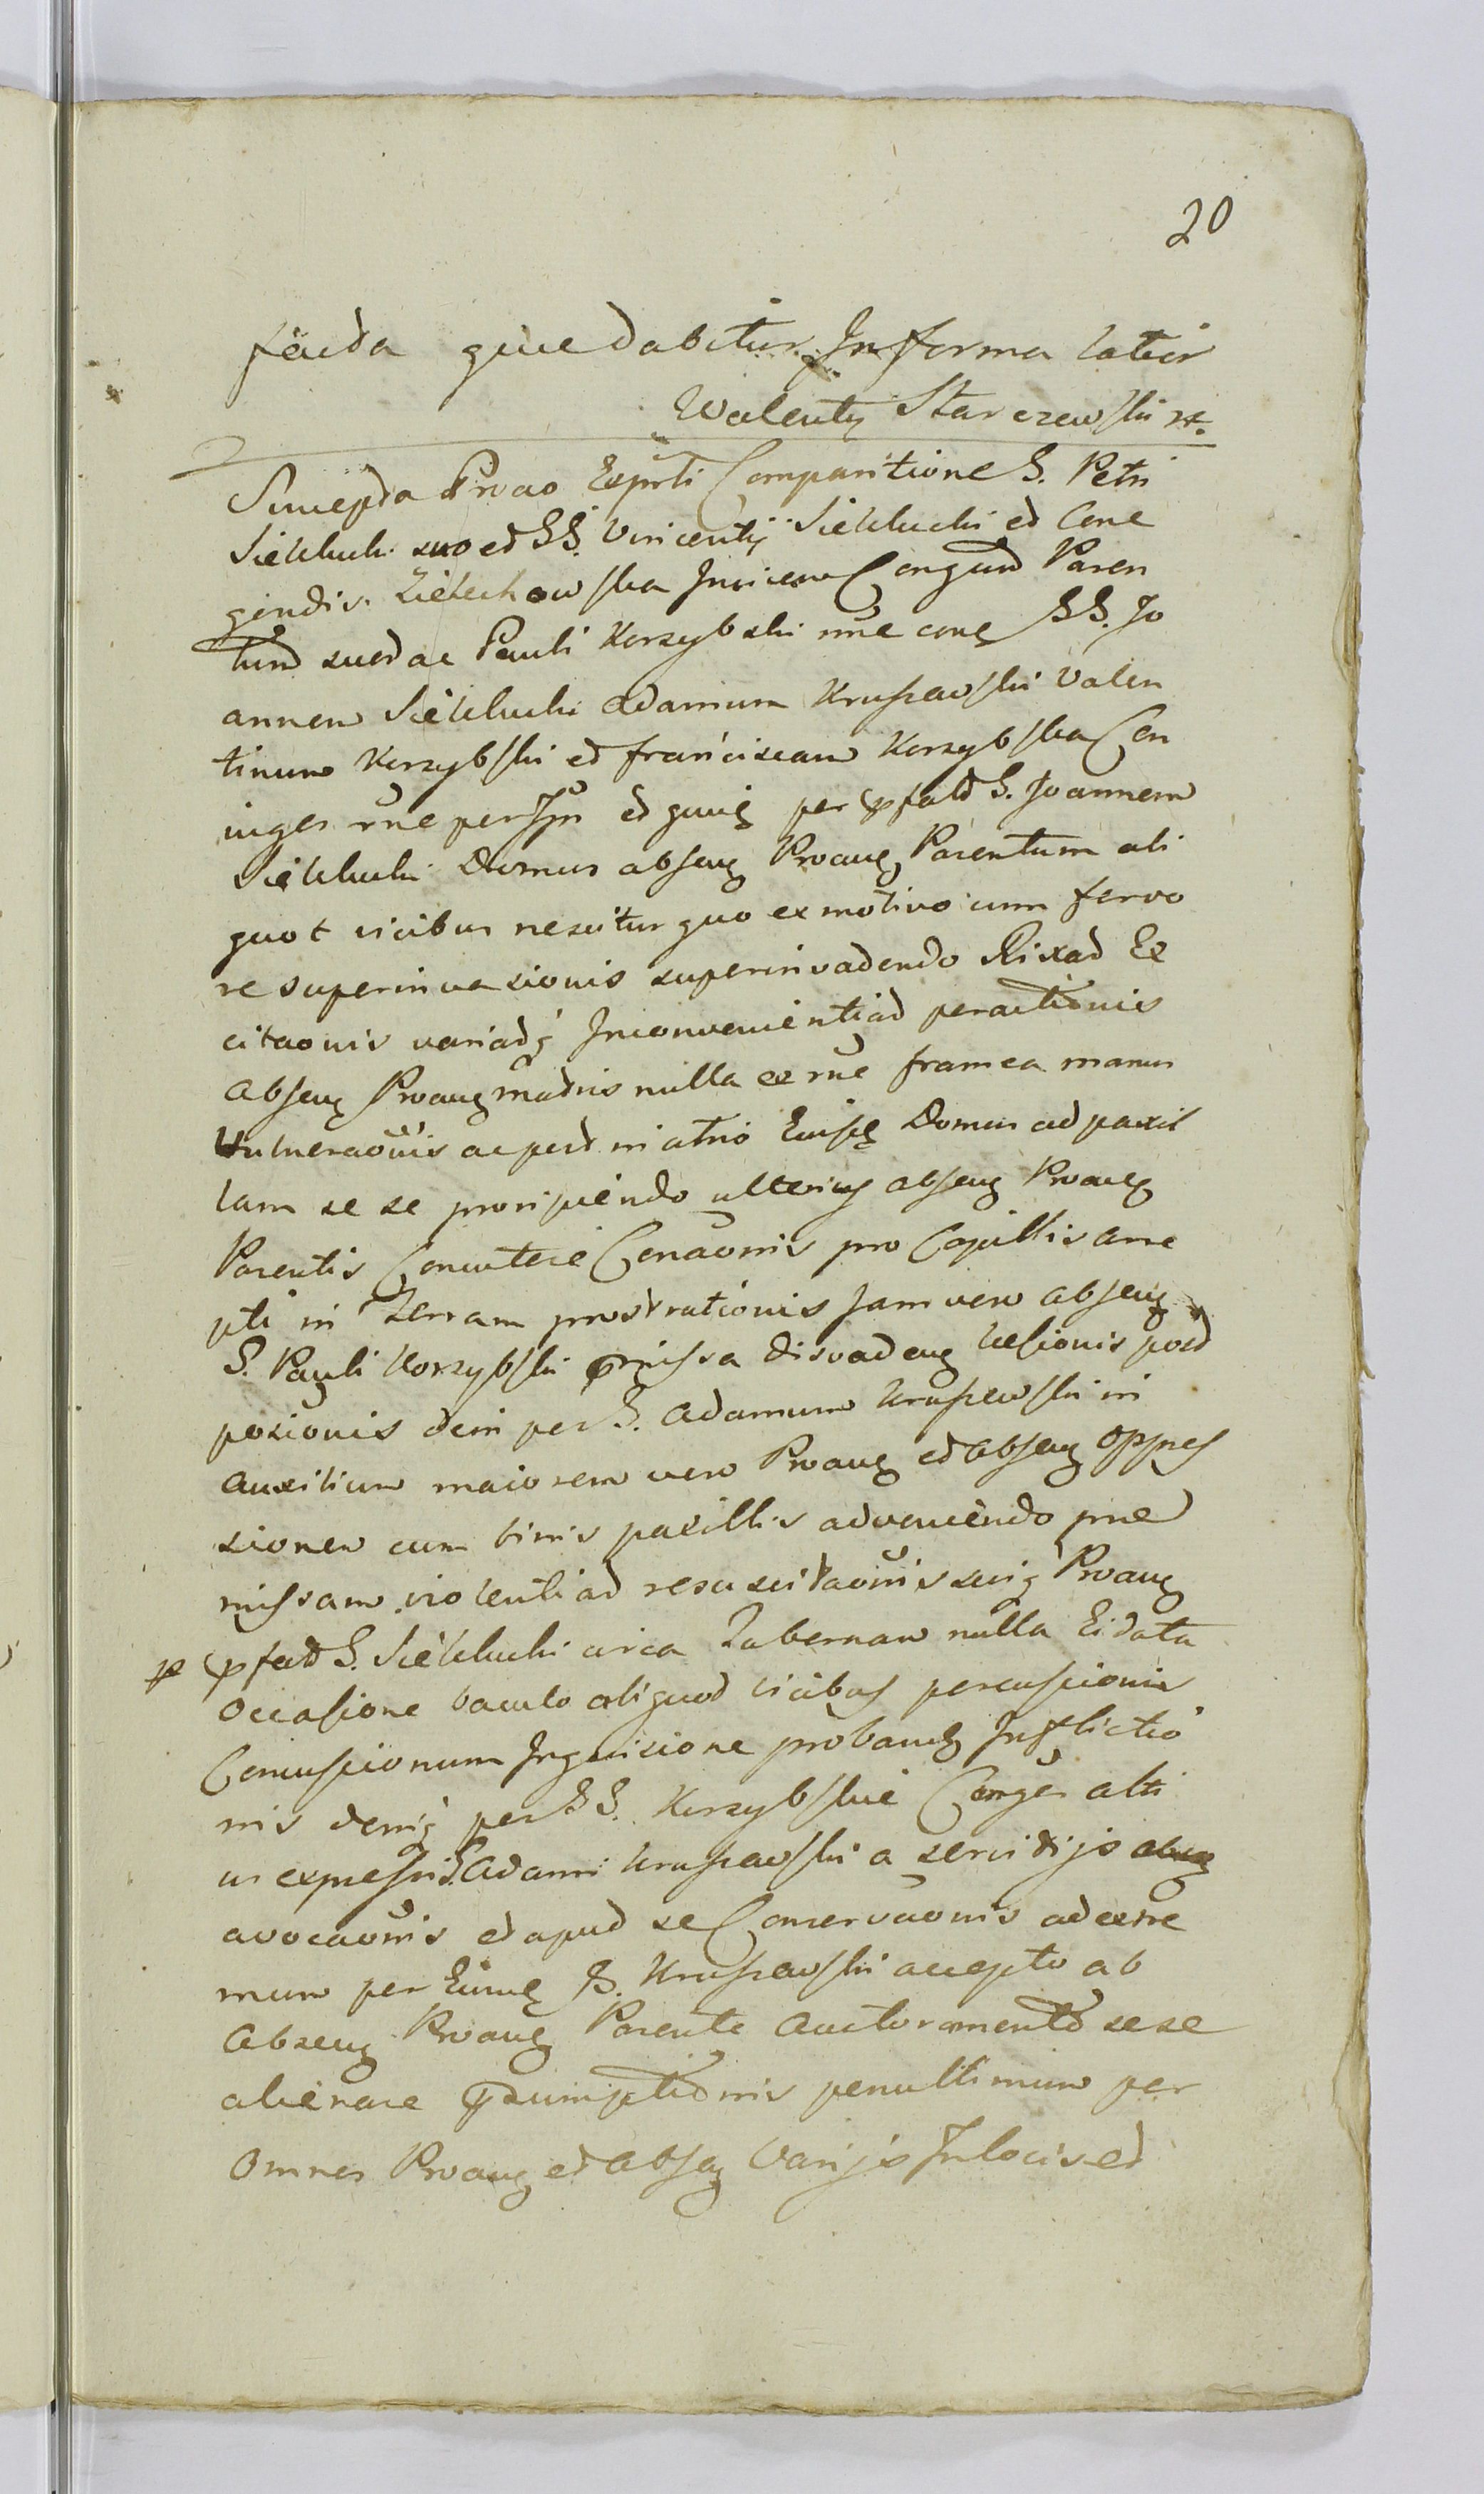 20
facta quae dabitur In forma latior
Walenty Starczewski m.
Suscepta Prvao Exprti Comparitione G. Petri
Siekłucki suo et GG. Vincentij Siekłucki et Cune
gendis Zielechowska Invicem Conjgum Paren
tum suor ac Pauli Korzybski nne conq GG. Jo
annem Siekłucki Adamum Kruszewski Valen
tinum Korzybski et Franciscam Korzybska Con
iuges rne per Ipm et quiq per pfatd G. Joannem
Siekłucki Domus absenq Prvanq Parentum ali
quot vicibus nescitur quo ex motivo cum fervo
re superinvasionis superinvadendo Rixar Ex
citaonis variarq Inconvenientiar peractionis
Absenq Prvanq matris nulla ex rne framea manus
Vulneraonis ac post in atrio Eiusq Domus ad paxil
lum se se proripiendo ulterius absenq Prvanq
Parentis Concutere Conaonis pro Capillis arre
pti in Terram prostrationis Jam vero absenq
G. Pauli Korzybski pmissa disvadenq lesionis post
posionis dein per G. Adamum Kruszewski in
auxilium maiorem vero Prvanq et Absenq oppres
sionem cum binis paxillis adveniendo prae
missam violentiar resuscitaonis suiq Prvanq
pfatd G. Siekłucki circa Tabernam nulla Ei data
Occasione baculo aliquot vicibus percussionis
Concussionum Inquisicione probanq Inflictio
nis deniq per GG. Korzybskie Conges alti
us expressis G. Adami Kruszewski a servitijs
avocaonis et apud se Conservaonis ad extre
mum per Eunq G. Kruszewski accepto ab
Absenq Prvanq Parente Auctoramento sese
alienare psumptionis penultimum per
Omnes Prvanq et Absenq Varijs In locis et